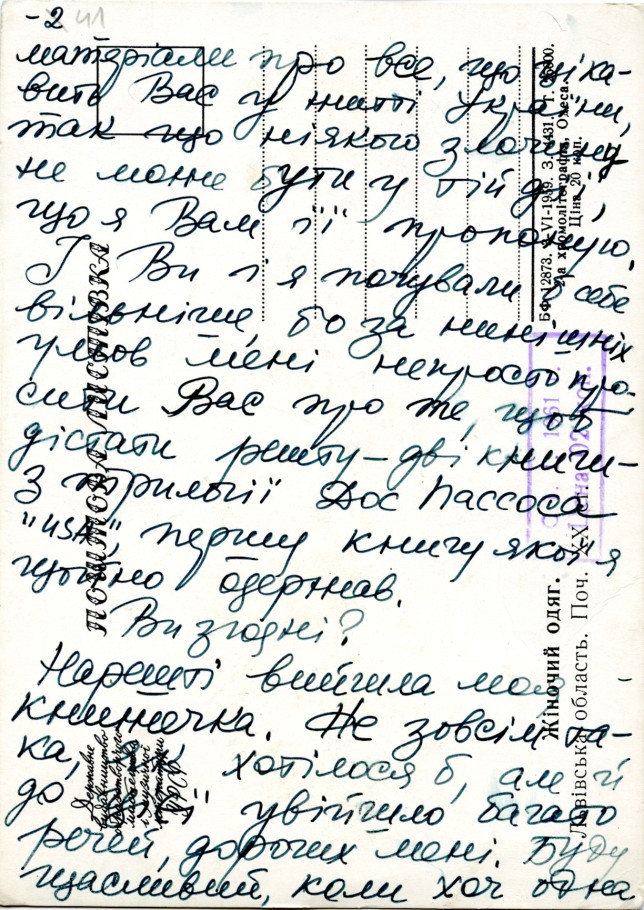 -2 41
матеріали про все, що ціка-
вить Вас у житті України,
так що ніякого злочину
не може бути у тій дії,
що я Вам її пропоную.
І Ви і я почували б себе
вільніше, бо за нинішніх
умов мені непросто про-
сити Вас про те, щоб
дістати решту – дві книги –
з трилогії Дос Пассоса
"USA", першу книгу якої я
щойно одержав.
Ви згодні?
Нарешті вийшла моя
книжечка. Не зовсім та-
ка, як хотілося б, але й
до її увійшло багато
речей, дорогих мені. Буду
щасливий, коли хоч одна
ПОШТОВА ЛИСТІВКА
Державне
видавництво
образотворчого
мистецтва
УРСР
Жіночий одяг.
Львівська область. Поч. XX
БФ 12873. VI-1959. З. 431. Т.
а хромолітографія, Одеса.
Ціна 20 коп.
1961
Ціна 02 коп.